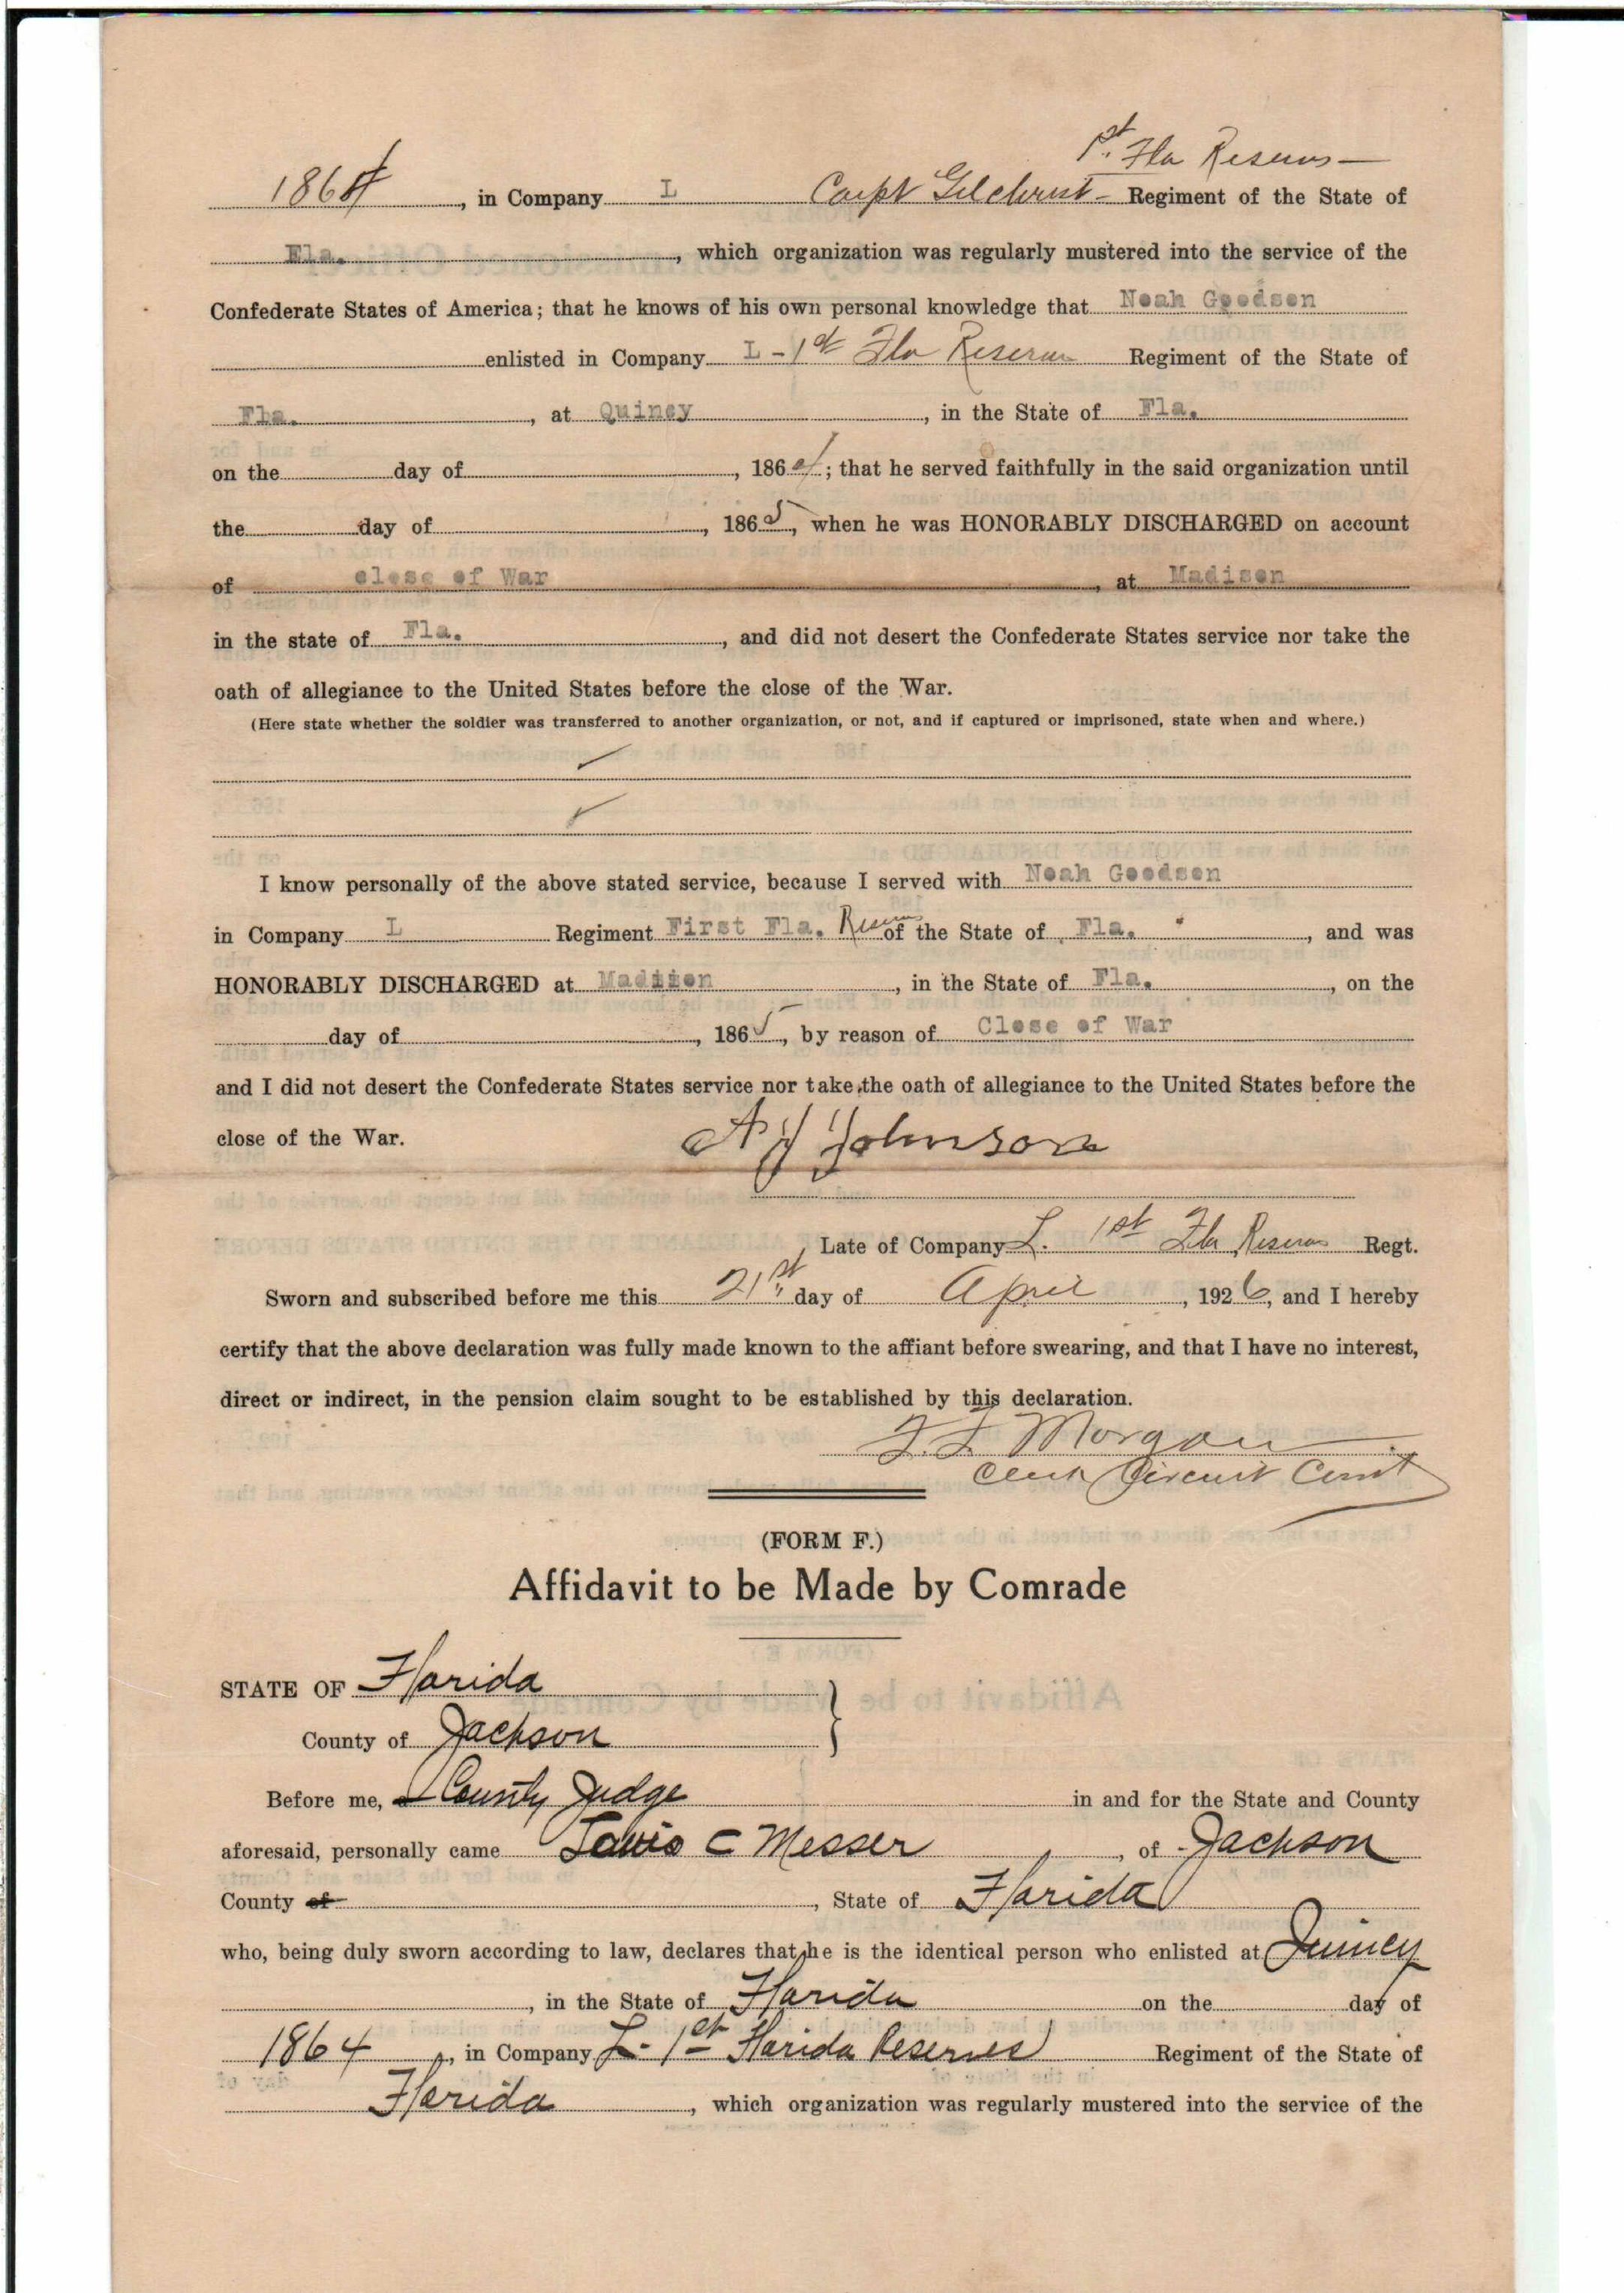 1st Fla Reserves
1864, in Company L Capt Gilchrist Regiment of the State of
Fla., which organization was regularly mustered into the service of the
Confederate States of America; that he knows of his own personal knowledge that Noah Goodson
enlisted in Company L - 1st Fla Reserves Regiment of the State of
Fla., at Quincy, in the State of Fla.
on the day of , 1864; that he served faithfully in the said organization until
the day of , 1865, when he was HONORABLY DISCHARGED on account
of close of War, at Madison
in the state of Fla., and did not desert the Confederate States service nor take the
oath of allegiance to the United States before the close of the War.
(Here state whether the soldier was transferred to another organization, or not, and if captured or imprisoned, state when and where.)
I know personally of the above stated service, because I served with Noah Goodson
in Company L Regiment First Fla. Reserves of the State of Fla. , and was
HONORABLY DISCHARGED at Madison, in the State of Fla., on the
day of , 1865, by reason of Close of War
and I did not desert the Confederate States service nor take the oath of allegiance to the United States before the
close of the War. A J Johnson
Late of Company L. 1st Fla Reserves Regt.
Sworn and subscribed before me this 21st day of April, 1926, and I hereby
certify that the above declaration was fully made known to the affiant before swearing, and that I have no interest,
direct or indirect, in the pension claim sought to be established by this declaration.
Morgan
Clerk Circuit Court
(FORM F.)
Affidavit to be Made by Comrade
STATE OF Florida
County of Jackson
Before me, a County Judge in and for the State and County
aforesaid, personally came Lewis C Messer, of Jackson
County of , State of Florida
who, being duly sworn according to law, declares that he is the identical person who enlisted at Quincy
, in the State of Florida on the day of
1864, in Company L - 1st Florida Reserves Regiment of the State of
Florida, which organization was regularly mustered into the service of the